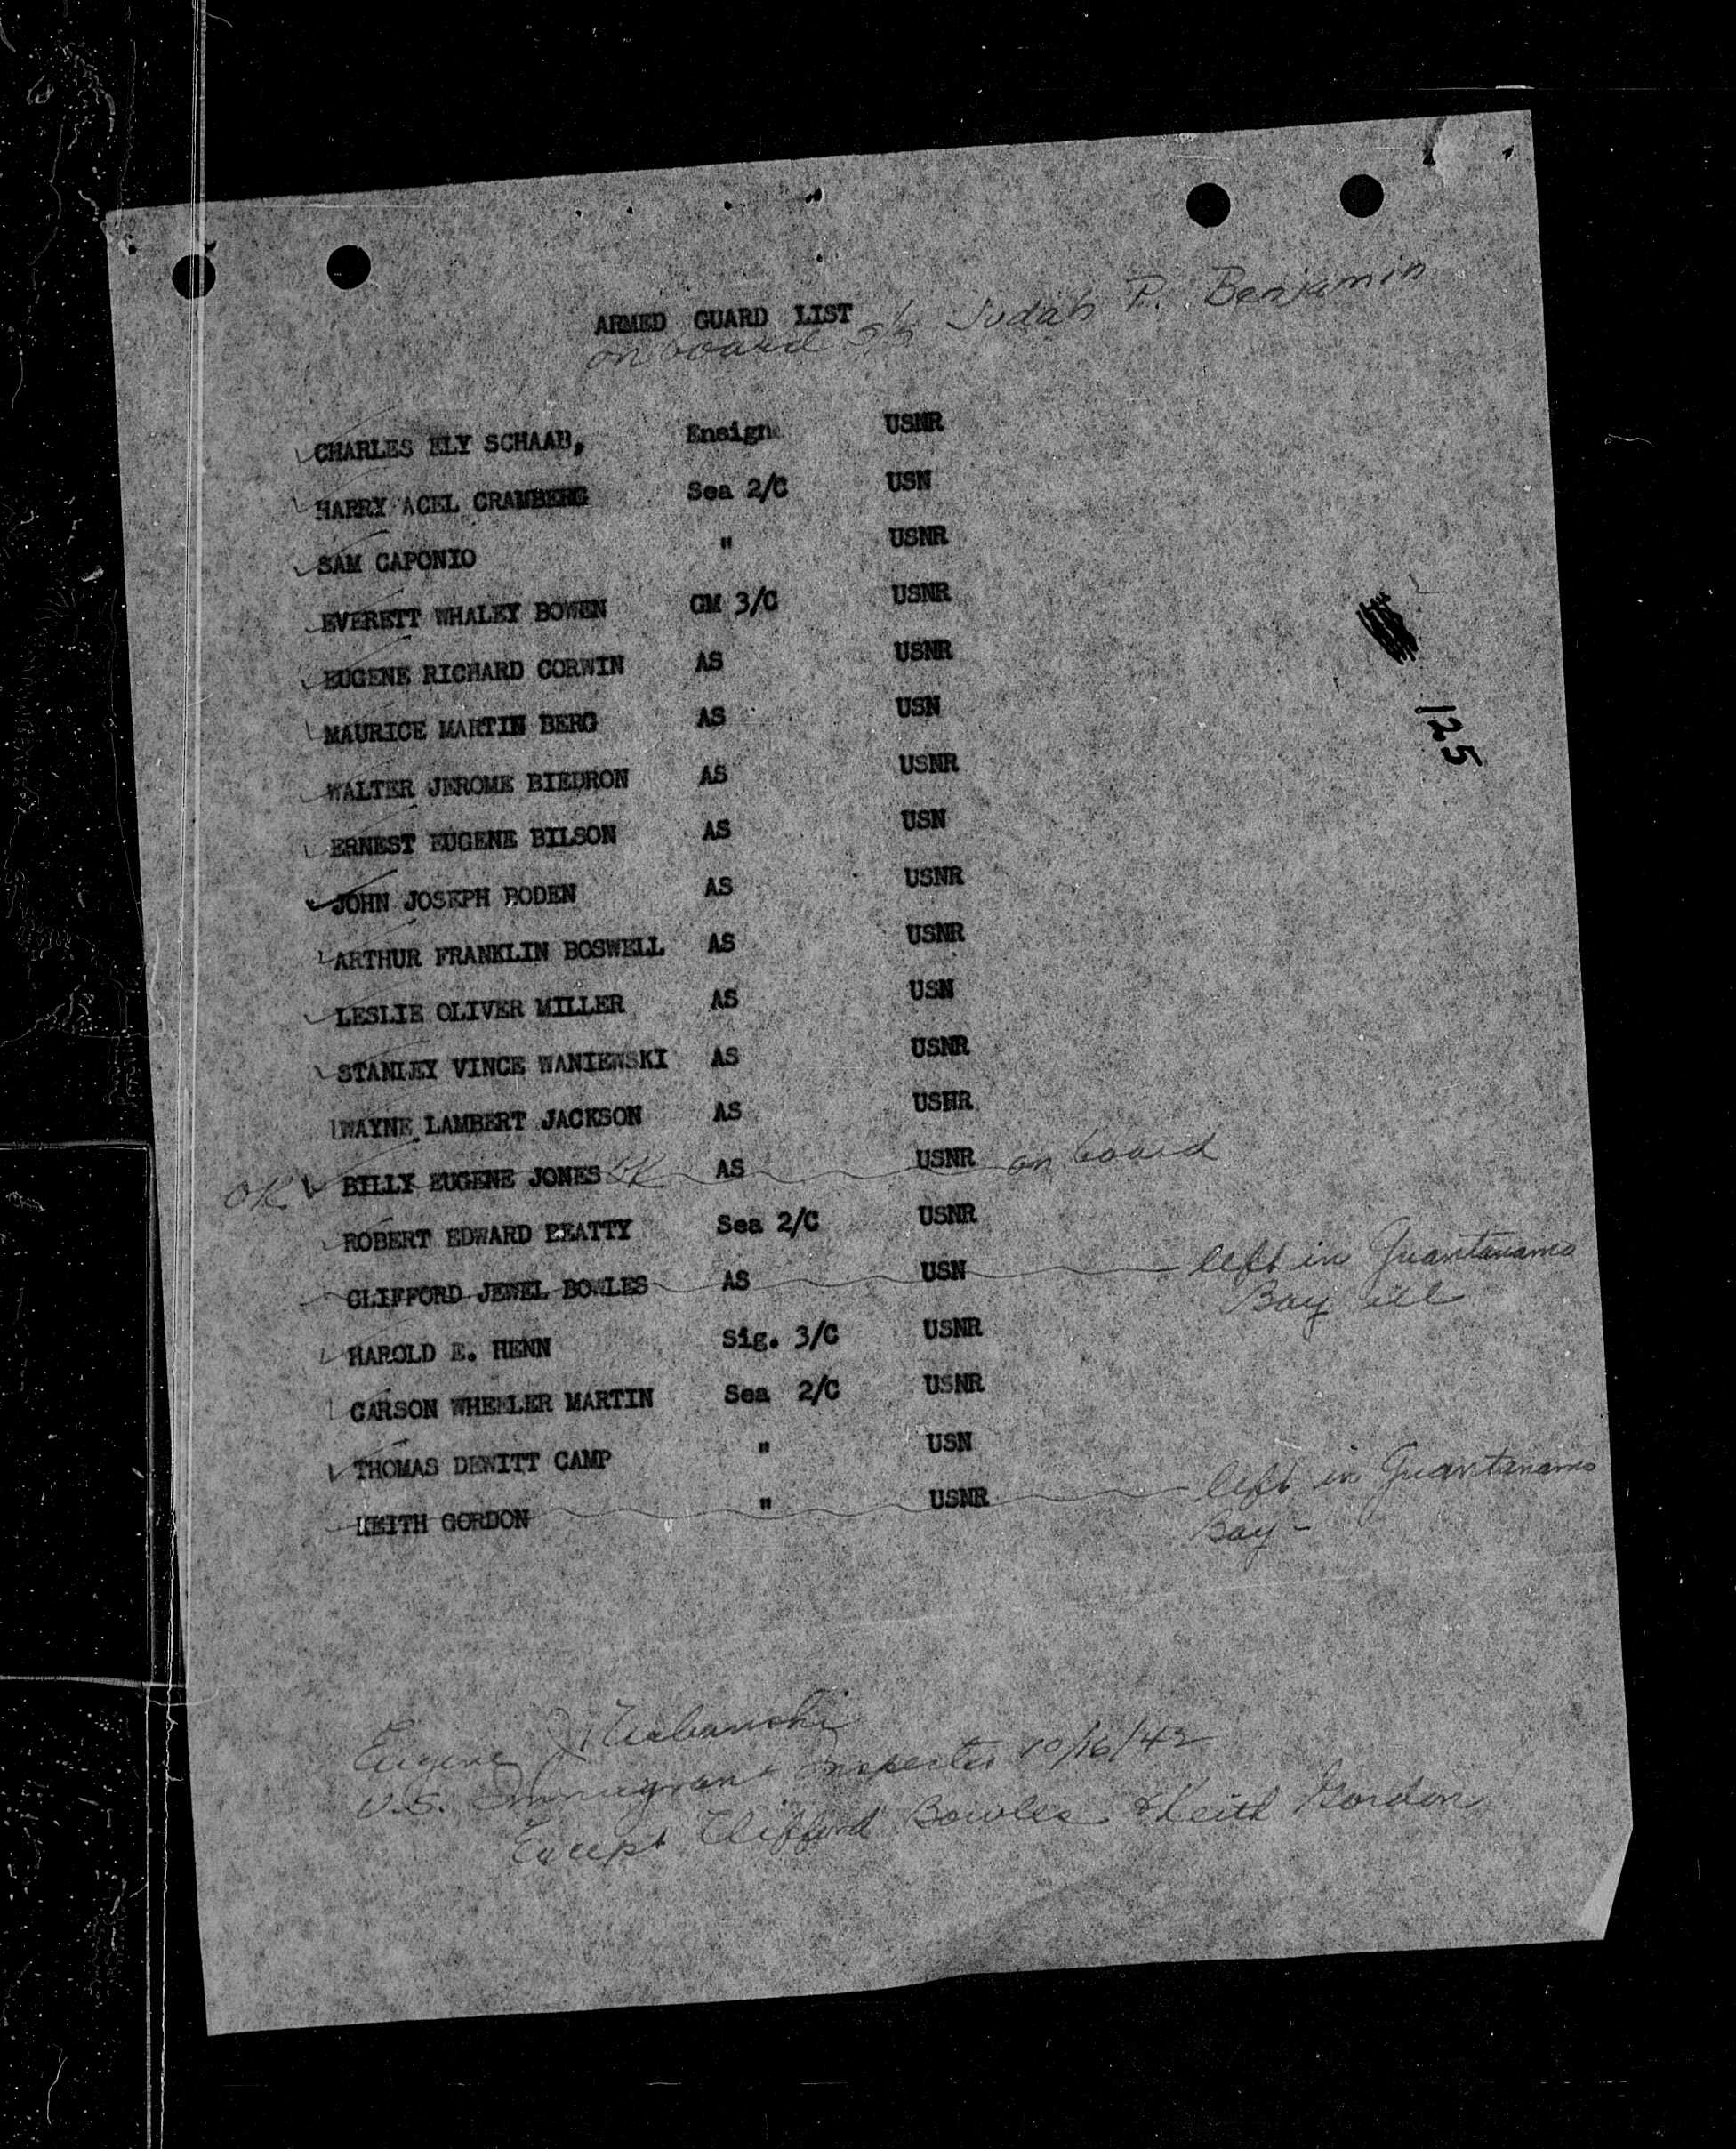 ARMED GUARD LIST
on board S/S Judah P. Benjamin
CHARLES ELY SCHAAB, Ensign USNR
HARRY ACEL CRAMBERG Sea 2/C USN
SAM CAPONIO " USNR
EVERETT WHALEY BOWEN GM 3/C USNR
125
EUGENE RICHARD CORWIN AS USNR
MAURICE MARTIN BERG AS USN
WALTER JEROME BIEDRON AS USNR
ERNEST EUGENE BILSON AS USN
JOHN JOSEPH BODEN AS USNR
ARTHUR FRANKLIN BOSWELL AS USNR
LESLIE OLIVER MILLER AS USN
STANLEY VINCE WANIEWSKI AS USNR
WAYNE LAMBERT JACKSON AS USNR
OK BILLY EUGENE JONES OK AS USNR on board
ROBERT EDWARD BEATTY Sea 2/C USNR
CLIFFORD JEWEL BOWLES AS USN left in Guantanamo
Bay ill
HAROLD E. HENN Sig. 3/C USNR
CARSON WHEELER MARTIN Sea 2/C USNR
THOMAS DEWITT CAMP " USN
KEITH GORDON " USNR left in Guantanamo
Bay -
Eugene J.
U.S. Immigrant Inspector 10/16/42
Except Clifford Bowles & Keith Gordon